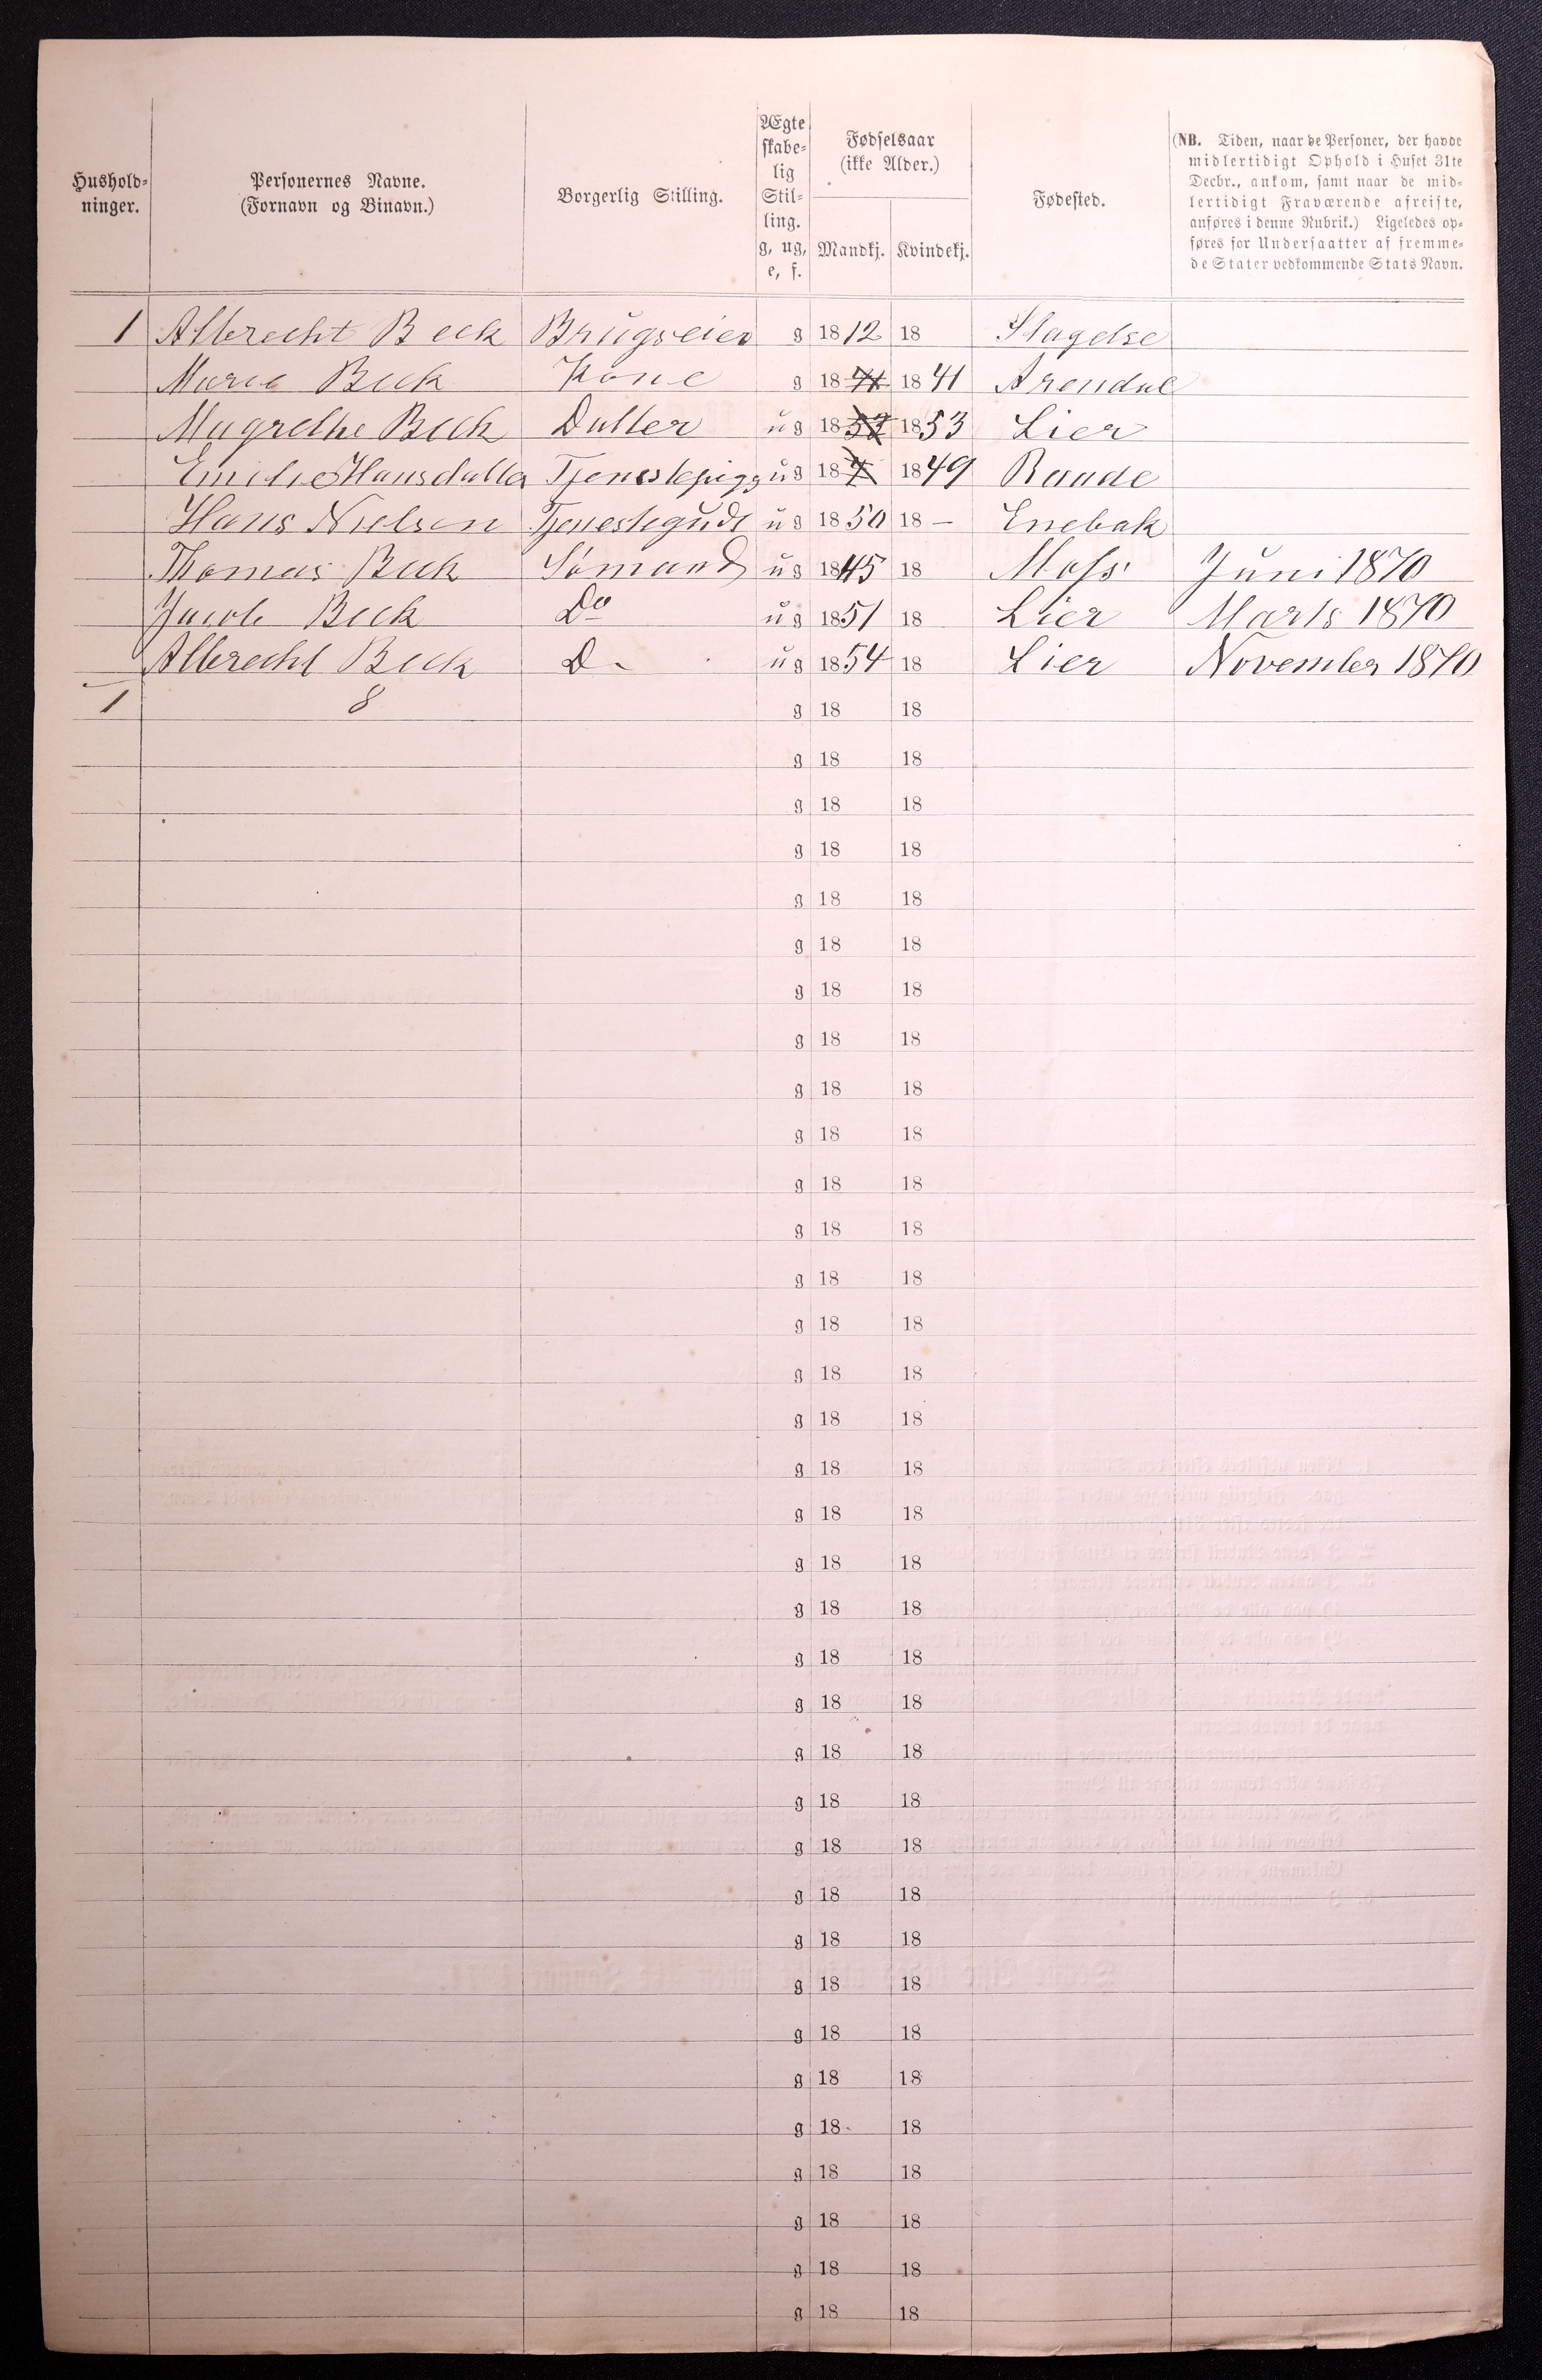 Hushold=
ninger.
Personernes Navne.
(Fornavn og Binavn.)
Borgerlig Stilling.
Ægte
skabe=
lig
Stil=
ling.
g, ug,
e, f.
Fødselsaar
(ikke Alder.)
Mandkj. Kvindekj.
Fødested.
(NB. Tiden, naar de Personer, der havde
midlertidigt Ophold i Huset 31te
Decbr., ankom, samt naar de mid=
lertidigt Fraværende afreiste,
anføres i denne Rubrik.) Ligeledes op=
føres for Undersaatter af fremme=
de Stater vedkommende Stats Navn.
1 Albrecht Beck Brugseier g 1812 18 Slagelse
Marie Beck Kone g 1841 1841 Arendal
Magrethe Beck Datter ug 1853 1853 Lier
Emilie Hansdatter Tjenestepige ug 184 1849 Raade
Hans Nielsen Tjenestegudt ug 1850 18 – Enebak
Thomas Beck Sømand ug 1845 18 Moss Juni 1870
Jacob Beck Do ug 1851 18 Lier Marts 1870
Albrecht Beck D ug 1854 18 Lier November 1870
1 8 g 18 18
g 18 18
g 18 18
g 18 18
g 18 18
g 18 18
g 18 18
g 18 18
g 18 18
g 18 18
g 18 18
g 18 18
g 18 18
g 18 18
g 18 18
g 18 18
g 18 18
g 18 18
g 18 18
g 18 18
g 18 18
g 18 18
g 18 18
g 18 18
g 18 18
g 18 18
g 18 18
g 18 18
g 18 18
g 18 18
g 18 18
g 18 18
g 18 18
g 18 18
g 18 18